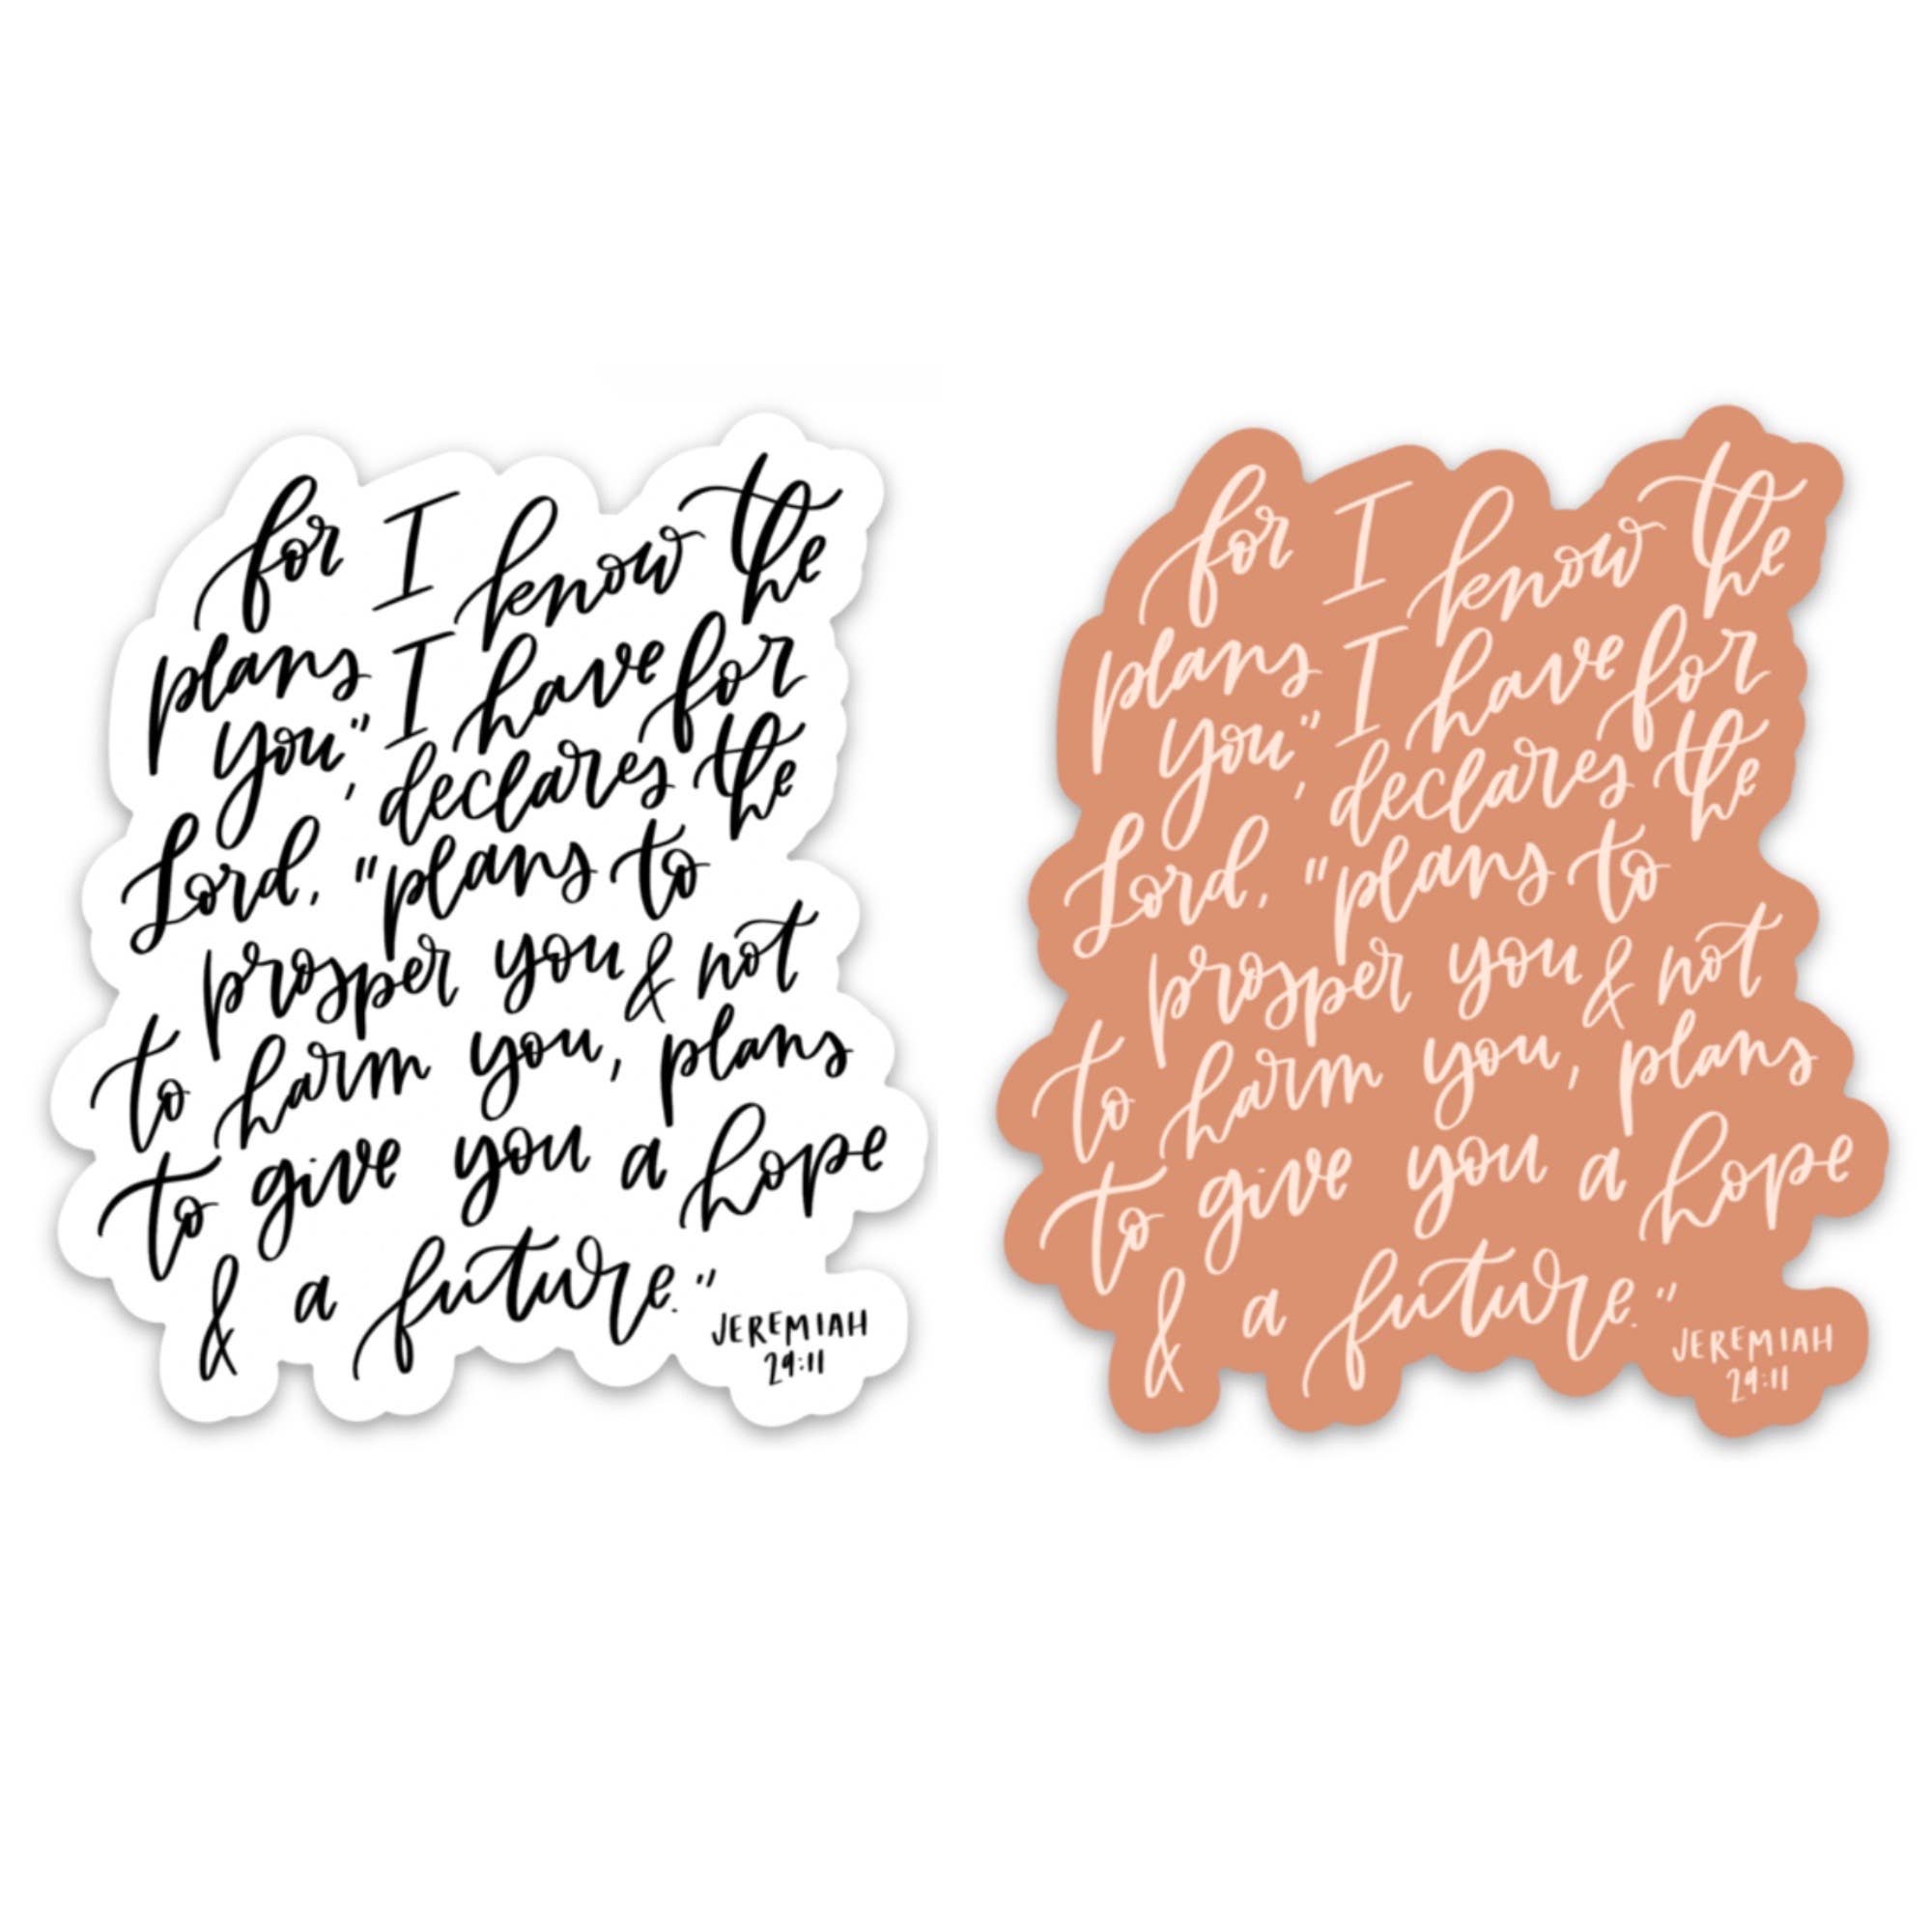 for I know the
plans I have for
you," declares the
Lord, "plans to
prosper you & not
to harm you, plans
to give you a hope
& a future."
JEREMIAH
29:11
for I know the
plans I have for
you," declares the
Lord, "plans to
prosper you & not
to harm you, plans
to give you a hope
& a future."
JEREMIAH
29:11